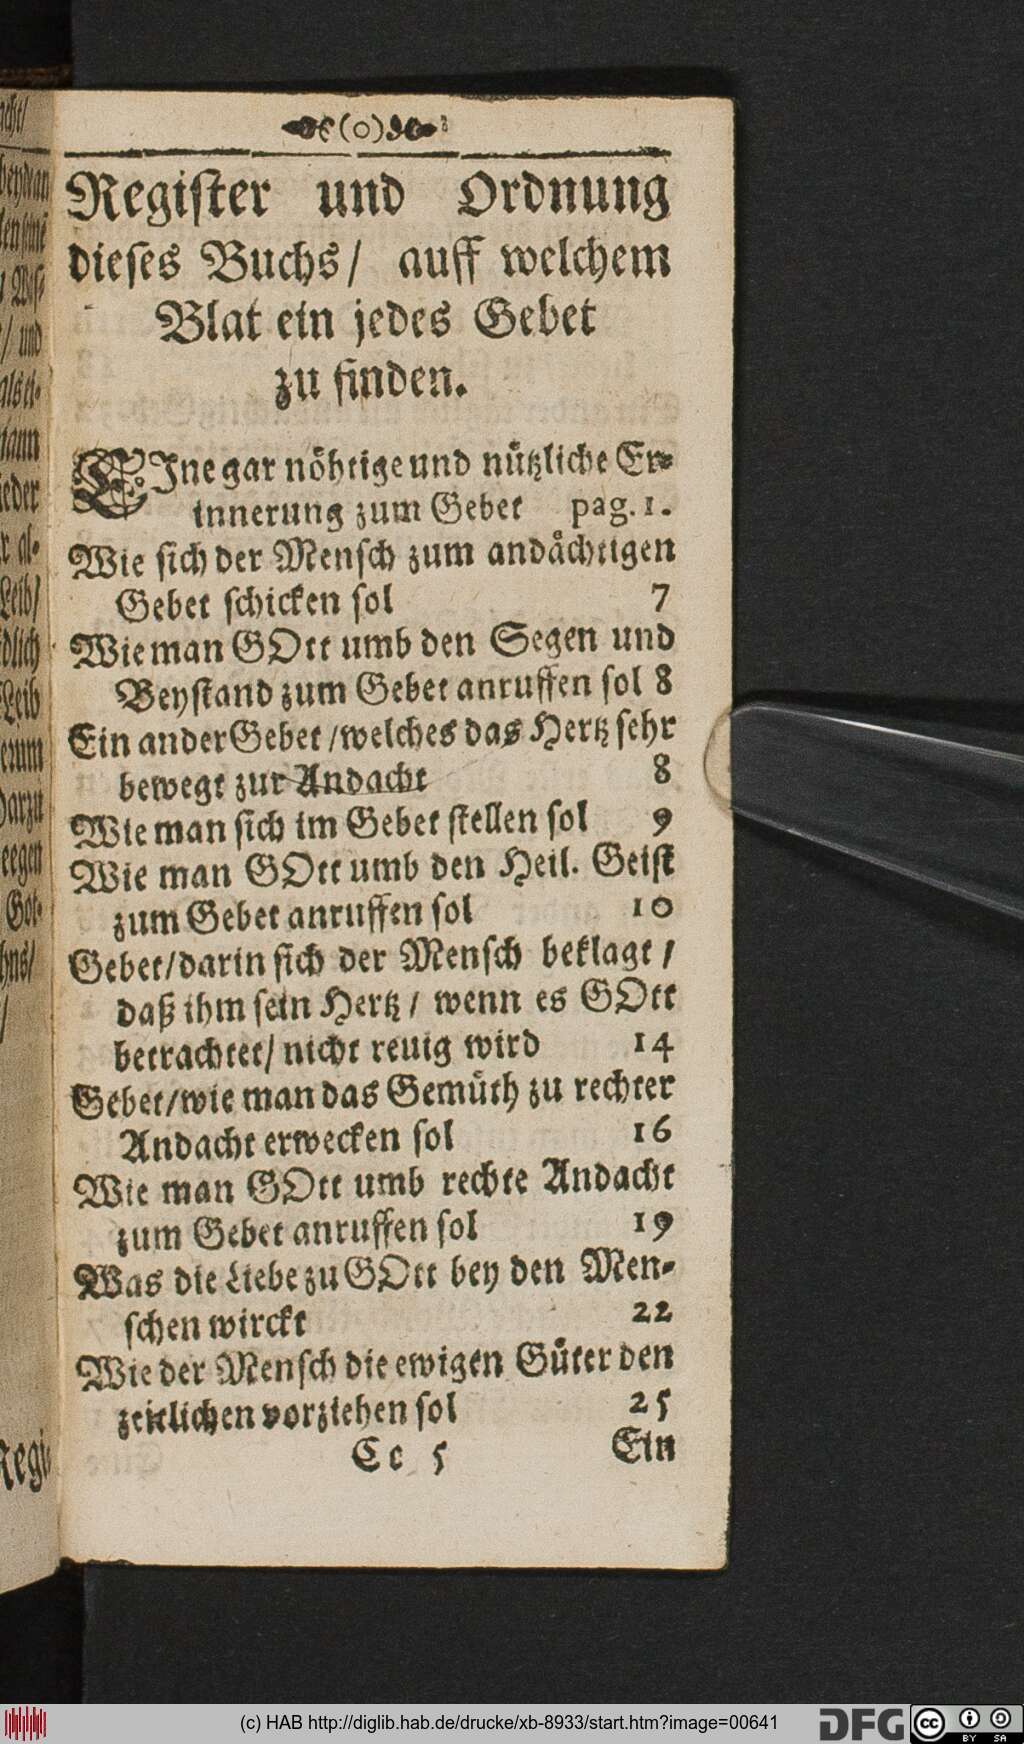 (o)
Regiſter und Ordnung
dieſes Buchs/ auff welchem
Blat ein jedes Gebet
zu finden.
EIne gar nöhtige und nützliche Er-
innerung zum Gebet pag. 1.
Wie ſich der Menſch zum andaͤchtigen
Gebet ſchicken ſol 7
Wie man GOtt umb den Segen und
Beyſtand zum Gebet anruffen ſol 8
Ein ander Gebet /welches das Hertz ſehr
bewegt zur Andacht 8
Wie man ſich im Gebet ſtellen ſol 9
Wie man GOtt umb den Heil. Geiſt
zum Gebet anruffen ſol 10
Gebet/darin ſich der Menſch beklagt /
daß ihm ſein Hertz / wenn es GOtt
betrachtet/ nicht reuig wird 14
Gebet/wie man das Gemüth zu rechter
Andacht erwecken ſol 16
Wie man GOtt umb rechte Andacht
zum Gebet anruffen ſol 19
Was die Liebe zu GOtt bey den Men-
ſchen wirckt 22
Wie der Menſch die ewigen Guͤter den
zeitlichen vorziehen ſol 25
Cc 5 Ein
(c) HAB http://diglib.hab.de/drucke/xb-8933/start.htm?image=00641
DFG
cc
BY SA